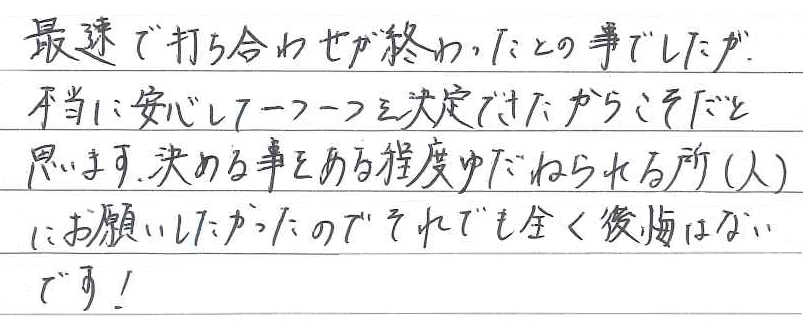 最速で打ち合わせが終わったとの事でしたが、
本当に安心して一つ一つを決定できたからこそだと
思います。決める事をある程度ゆだねられる所(人)
にお願いしたかったのでそれでも全く後悔はない
です!